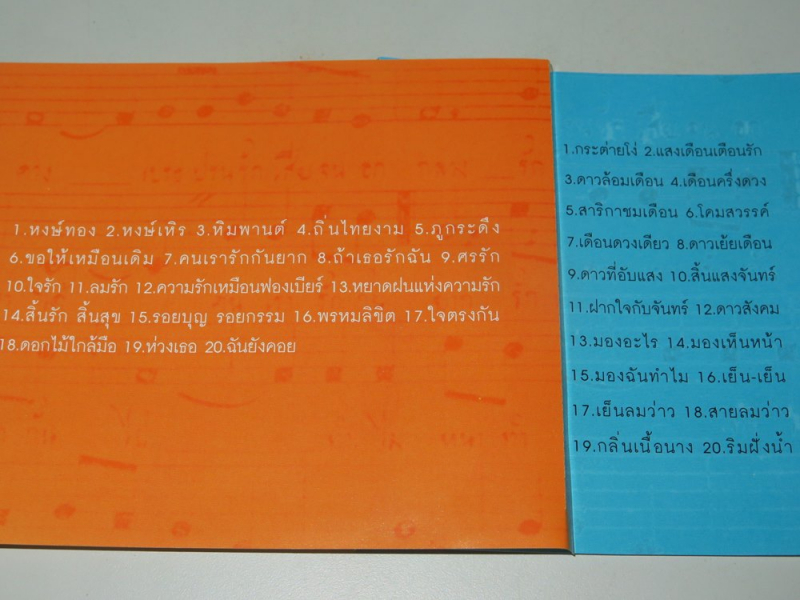 1.หงษ์ทอง 2.หงษ์เหิร 3.หิมพานต์ 4.ถิ่นไทยงาม 5.ภูกระดึง
6.ขอให้เหมือนเดิม 7.คนเรารักกันยาก 8.ถ้าเธอรักฉัน 9.ศรรัก
10.ใจรัก 11.ลมรัก 12.ความรักเหมือนฟองเบียร์ 13.หยาดฝนแห่งความรัก
14.สิ้นรัก สิ้นสุข 15.รอยบุญ รอยกรรม 16.พรหมลิขิต 17.ใจตรงกัน
18.ดอกไม้ใกล้มือ 19.ห่วงเธอ 20.ฉันยังคอย
1.กระต่ายโง่ 2.แสงเดือนเตือนรัก
3.ดาวล้อมเดือน 4.เดือนครึ่งดวง
5.สาริกาชมเดือน 6.โคมสวรรค์
7.เดือนดวงเดียว 8.ดาวเย้ยเดือน
9.ดาวที่อับแสง 10.สิ้นแสงจันทร์
11.ฝากใจกับจันทร์ 12.ดาวสังคม
13.มองอะไร 14.มองเห็นหน้า
15.มองฉันทำไม 16.เย็น-เย็น
17.เย็นลมว่าว 18.สายลมว่าว
19.กลิ่นเนื้อนาง 20.ริมฝั่งน้ำ